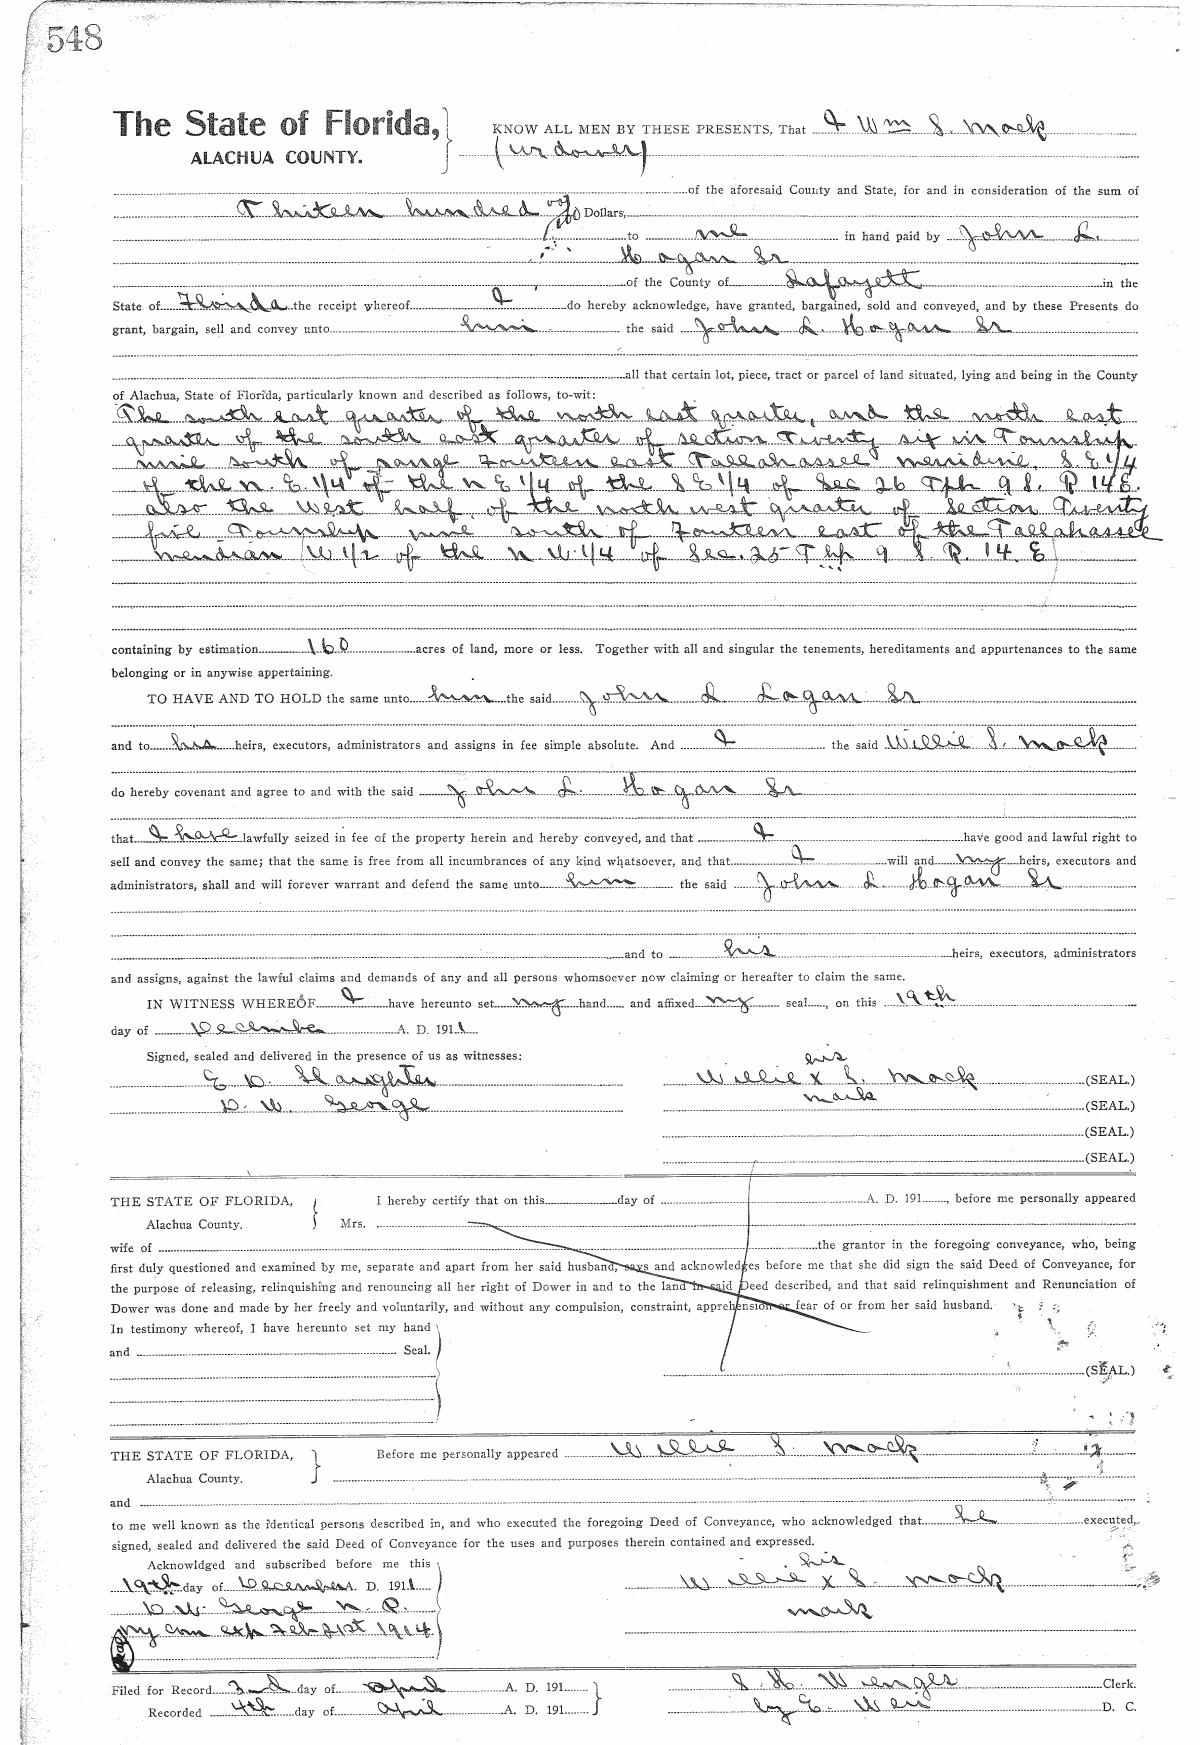 548
The State of Florida,
ALACHUA COUNTY.
KNOW ALL MEN BY THESE PRESENTS, That I Wm S. Mack
(widower)
of the aforesaid County and State, for and in consideration of the sum of
Thirteen hundred 00/100 Dollars,
to me in hand paid by John L.
Hogan Sr
of the County of Lafayett in the
State of Florida the receipt whereof I do hereby acknowledge, have granted, bargained, sold and conveyed, and by these Presents do
grant, bargain, sell and convey unto him the said John L. Hogan Sr
all that certain lot, piece, tract or parcel of land situated, lying and being in the County
of Alachua, State of Florida, particularly known and described as follows, to-wit:
The south east quarter of the north east quarter, and the north east
quarter of the south east quarter of section Twenty six in Township
nine south of range Fourteen east Tallahassee merridine, S. E 1/4
of the N. E. 1/4 of the N E 1/4 of the S E 1/4 of Sec 26 Tph 9 S. R 14 E.
also the West half of the north west quarter of Section Twenty
five Township nine south of Fourteen east of the Tallahassee
meridian (W 1/2 of the N W. 1/4 of Sec. 25 Thp 9 S. R. 14. E)
containing by estimation 160 acres of land, more or less. Together with all and singular the tenements, hereditaments and appurtenances to the same
belonging or in anywise appertaining.
TO HAVE AND TO HOLD the same unto him the said John L Logan Sr
and to his heirs, executors, administrators and assigns in fee simple absolute. And I the said Willie S. Mack
do hereby covenant and agree to and with the said John L. Hogan Sr
that I have lawfully seized in fee of the property herein and hereby conveyed, and that I have good and lawful right to
sell and convey the same; that the same is free from all incumbrances of any kind whatsoever, and that I will and my heirs, executors and
administrators, shall and will forever warrant and defend the same unto him the said John L. Hogan Sr
and to his heirs, executors, administrators
and assigns, against the lawful claims and demands of any and all persons whomsoever now claiming or hereafter to claim the same.
IN WITNESS WHEREOF I have hereunto set my hand and affixed my seal, on this 19th
day of December A. D. 1911
Signed, sealed and delivered in the presence of us as witnesses:
his
E D. Slaughter Willie x S. Mack (SEAL.)
D. W. George mark (SEAL.)
(SEAL.)
(SEAL.)
THE STATE OF FLORIDA, I hereby certify that on this day of A. D. 191 , before me personally appeared
Alachua County. Mrs.
wife of the grantor in the foregoing conveyance, who, being
first duly questioned and examined by me, separate and apart from her said husband, says and acknowledges before me that she did sign the said Deed of Conveyance, for
the purpose of releasing, relinquishing and renouncing all her right of Dower in and to the land in said Deed described, and that said relinquishment and Renunciation of
Dower was done and made by her freely and voluntarily, and without any compulsion, constraint, apprehension or fear of or from her said husband.
In testimony whereof, I have hereunto set my hand
and Seal.
(SEAL.)
THE STATE OF FLORIDA, Before me personally appeared Willie S. Mack
Alachua County.
and
to me well known as the identical persons described in, and who executed the foregoing Deed of Conveyance, who acknowledged that he executed,
signed, sealed and delivered the said Deed of Conveyance for the uses and purposes therein contained and expressed.
Acknowldged and subscribed before me this his
19th day of December A. D. 1911 Willie x S. Mack
D. W. George N. P. mark
My com exp Feb-21st 1914
Filed for Record 3nd day of April A. D. 191 S. H. Wienges Clerk.
Recorded 4th day of April A. D. 191 by E. Weir D. C.